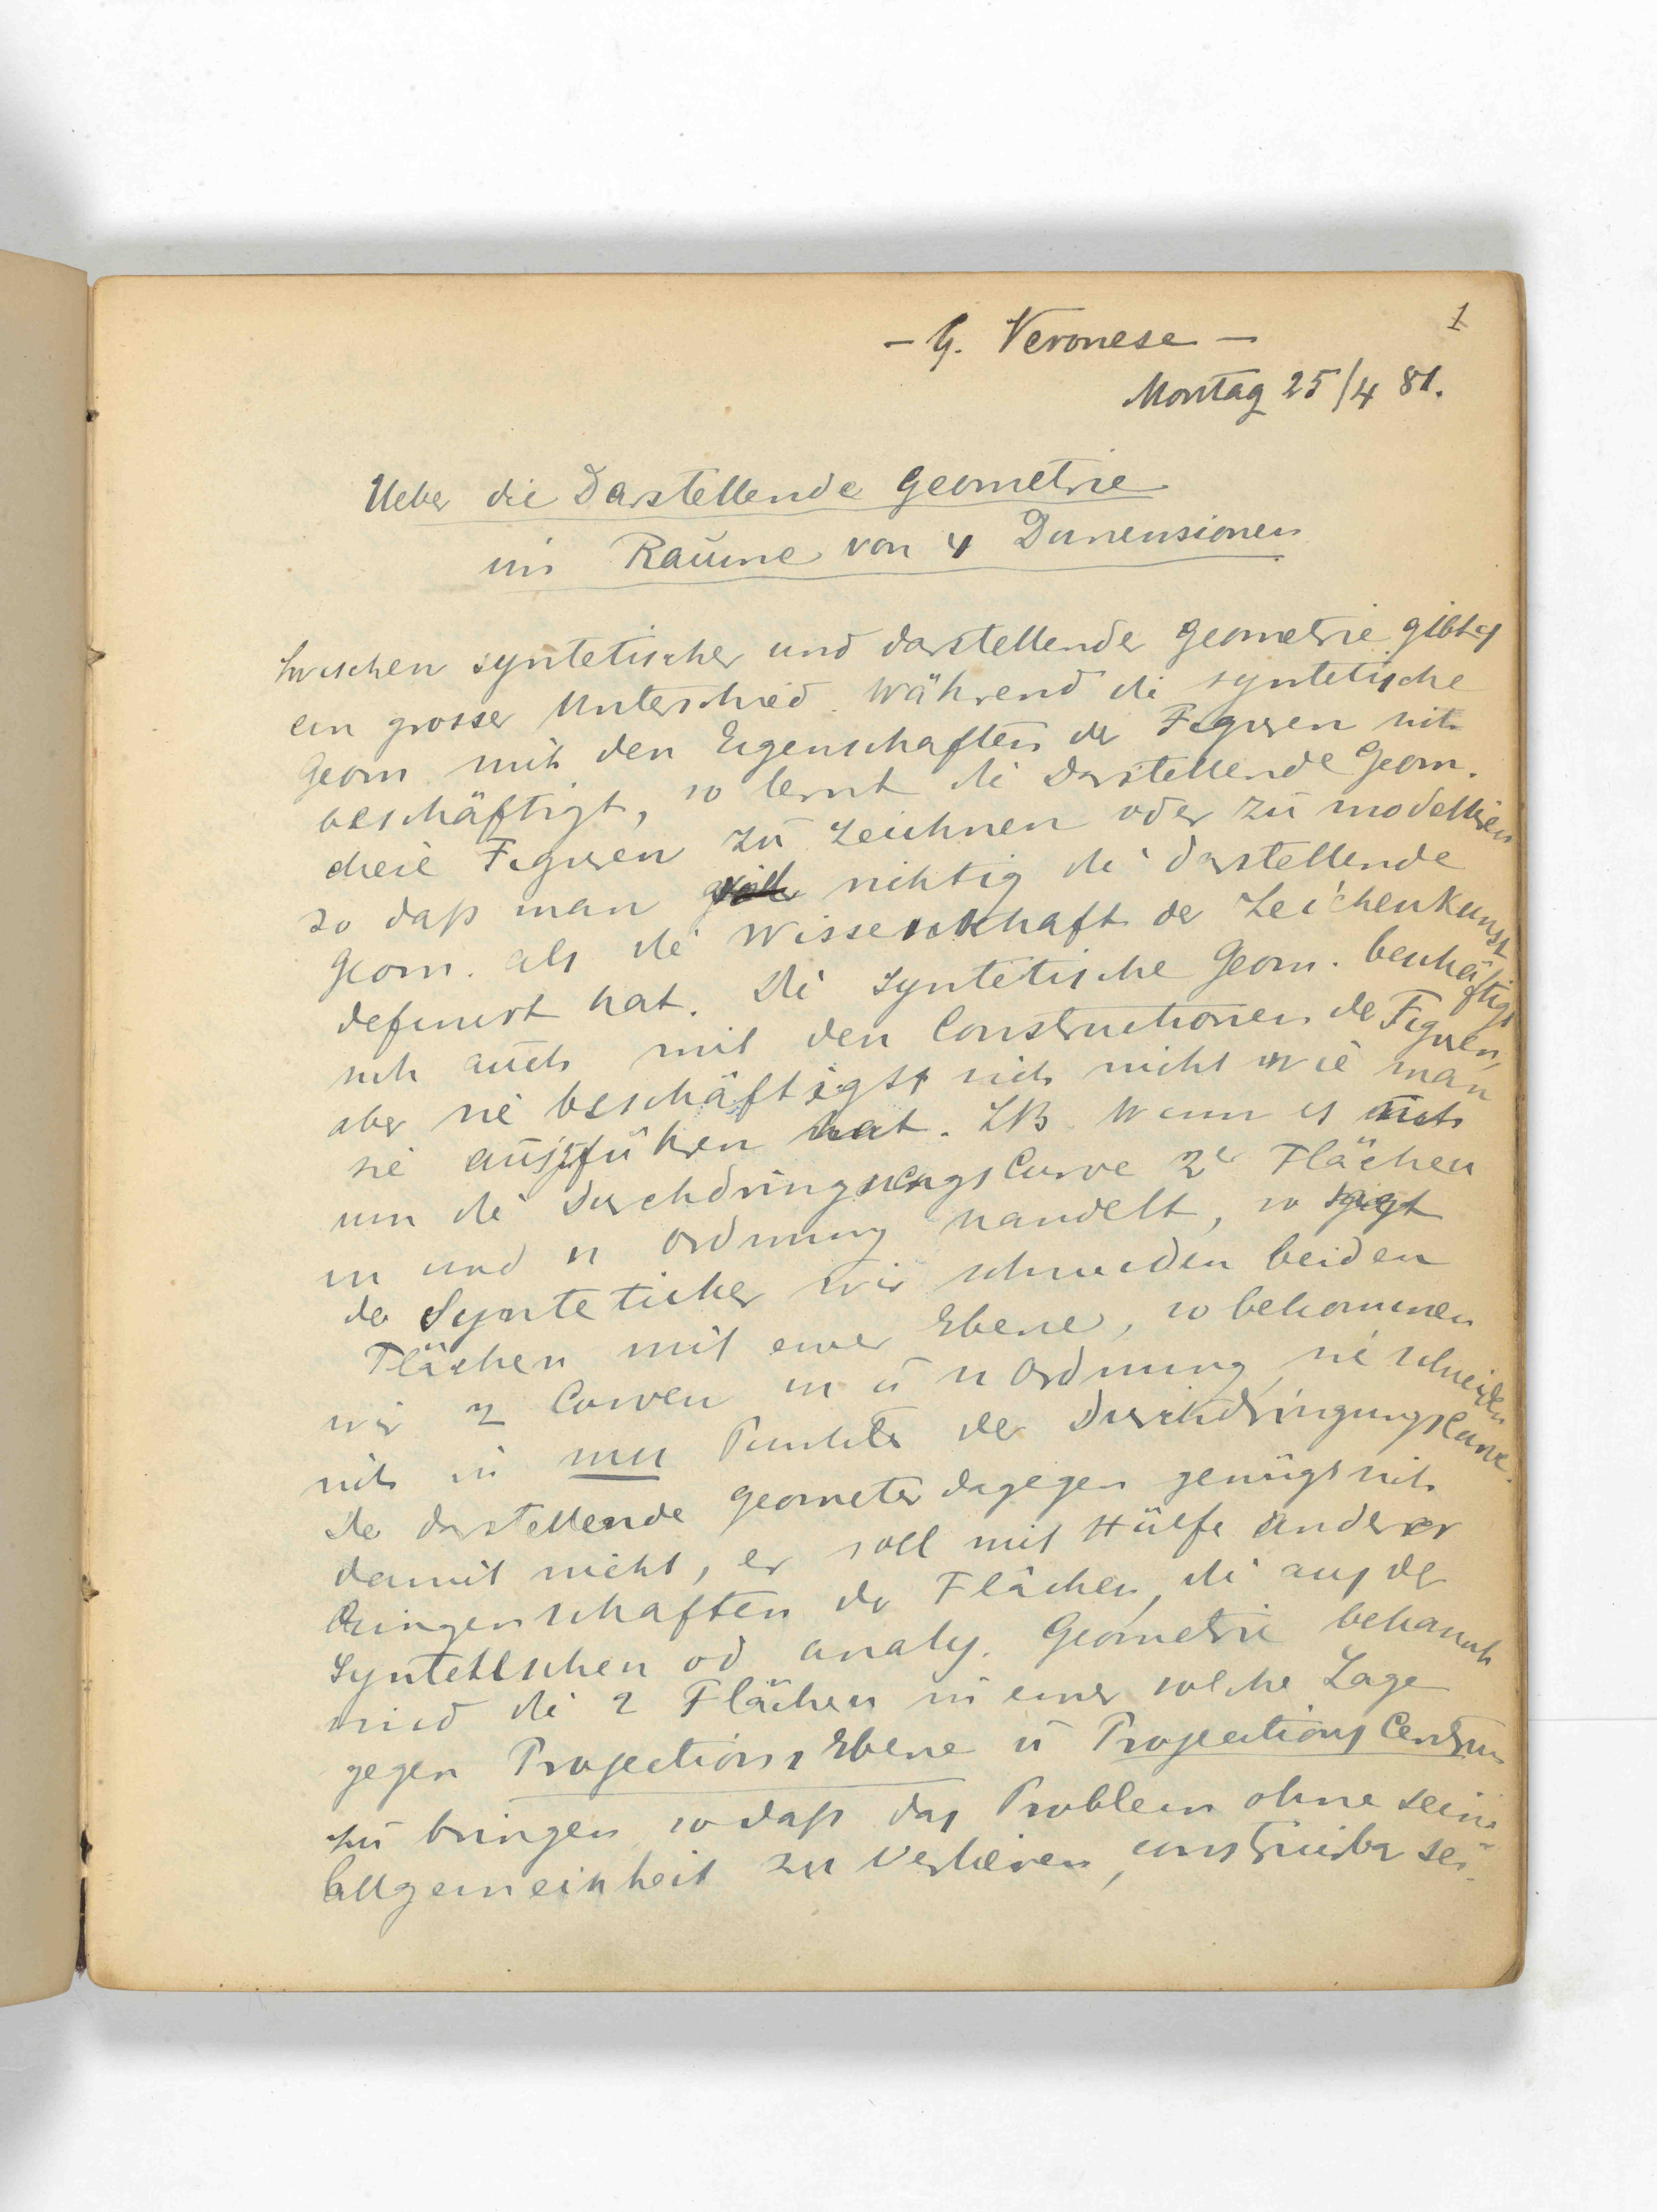 1
- G. Veronese -
Montag 25/4 81.
Ueber die Darstellende Geometrie
im Raume von 4 Dimensionen
Zwischen syntetischer und darstellender Geometrie gibt es
ein grosser Unterschied. Während die syntetische
Geom mit den Eigenschaften der Figuren sich
beschäftigt, so lernt die Darstellende Geom.
diese Figuren zu zeichnen oder zu modelliren
so daß man richtig die darstellende
Geom. als die Wissenschaft der Zeichenkunst
definirt hat. Die Syntetische Geom. beschäftigt
sich auch mit den Constructionen der Figuren,
aber sie beschäftigt sich nicht wie man
sie ausführen hat. ZB. Wenn es sich
um die Durchdringungs Curve 2er Flächen
m und n Ordnung handelt, so sagt
der Syntetiker wir schneiden beiden
Flächen mit einer Ebene, so bekommen
wir 2 Curven m u n Ordnung, sie schneiden
sich in mn Punkte der Durchdringungscurve.
Der darstellende Geometer dagegen genügt sich
damit nicht, er soll mit Hülfe anderer
Eingenschaften der Flächen, die aus der
Syntetischen od analy. Geometrie bekannt
sind die 2 Flächen in einer solche Lage
gegen Projections Ebene u Projections Centrum
zu bringen so daß das Problem ohne seine
Allgemeinheit zu verlieren, construirbar sei.